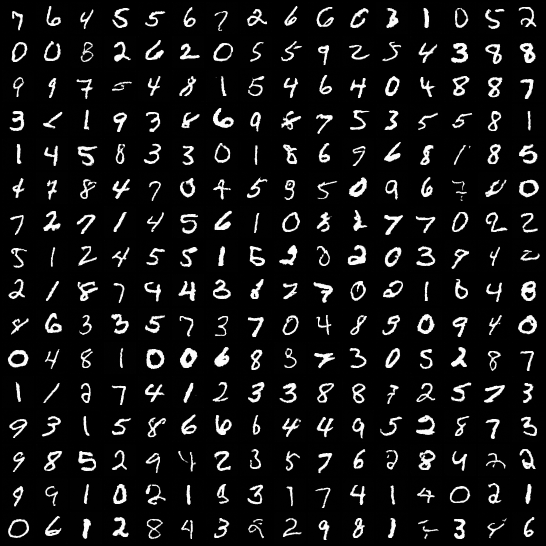 7 6 4 5 5 6 7 2 6 6 0 3 1 0 5 2
0 0 8 2 6 2 0 5 5 9 2 5 4 3 8 8
9 9 7 5 4 8 1 5 4 6 4 0 4 8 8 7
3 1 9 3 8 6 9 8 7 5 3 5 5 8 1
1 4 5 8 3 3 0 1 8 6 9 6 8 1 8 5
4 7 8 4 7 0 4 5 9 5 0 9 6 7 0
7 2 7 1 4 5 6 1 0 3 7 7 0 2 2
5 1 2 4 5 5 1 5 2 0 2 0 3 9 4 2
2 1 8 7 9 4 3 8 7 7 0 0 1 6 4 8
8 6 3 3 5 7 3 7 0 4 8 5 0 9 4 0
0 4 8 1 0 0 6 8 3 7 3 0 5 2 8 7
1 1 2 7 4 1 2 3 3 8 8 7 2 5 7 3
9 3 1 5 8 6 6 6 4 4 9 5 2 8 7 3
9 8 5 2 9 4 2 3 5 7 6 2 8 4 2 2
9 9 1 0 2 1 3 3 1 7 4 1 4 0 2 1
0 6 1 2 8 4 3 2 2 9 8 1 3 8 6